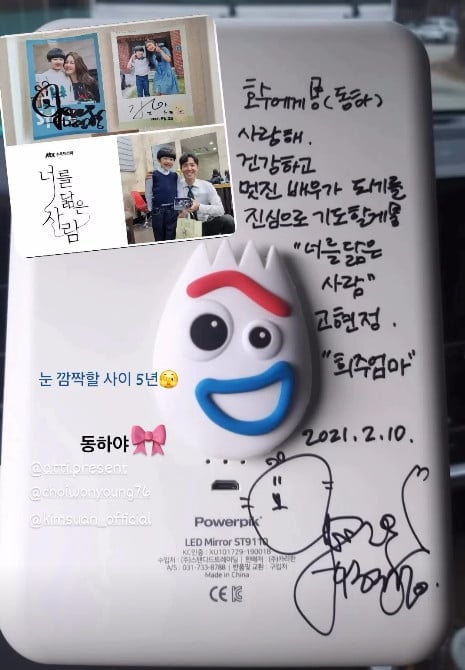 JTBC 수목드라마
너를
닮은
사람
호수에게 (동하)
사랑해.
건강하고
멋진 배우가 되기를
진심으로 기도할게
"너를 닮은
사람"
고현정.
"희주엄마"
2021.2.10.
눈 깜짝할 사이 5년🫣
동하야🎀
@atti.present
@choiwonyoung76
@kimsuan_official
Powerpik
LED Mirror ST9110
KC인증 : XU101729-19001B
수입처 : (주)스탠다드트레이딩 | 판매처 : (주)카리안
A/S : 031-733-8788 | 반품 및 교환 : 구입처
Made in China
CE